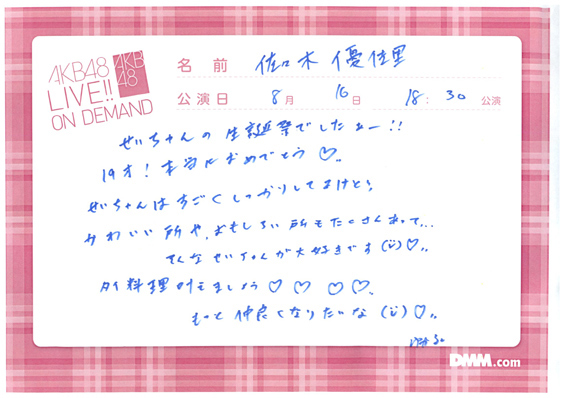 AKB48
LIVE!!
ON DEMAND
AKB
48
名前 佐々木 優佳里
公演日 8月 16日 18:30 公演
せいちゃんの生誕祭でしたぁー!!
19才!本当におめでとう♡..
せいちゃんはすごくしっかりしてるけど、
かわいい所や、おもしろい所もたくさんあって...
そんなせいちゃんが大好きです(¨)♡..
タイ料理行きましょう♡♡♡♡、
もっと仲良くなりたいな(¨)♡..
DMM.com